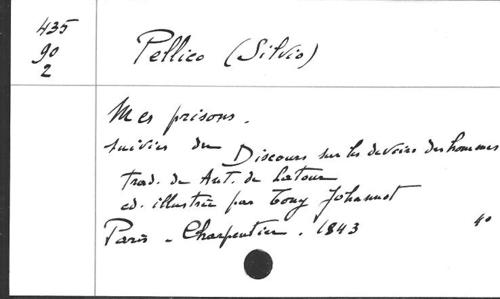 435
90
2
Pellico (Silvio)
Mes prisons.
suivies du Discours sur les devoirs des hommes
trad. de Ant. de Latour
ed. illustrée par Tony Johannot
Paris - Charpentier. 1843 4o